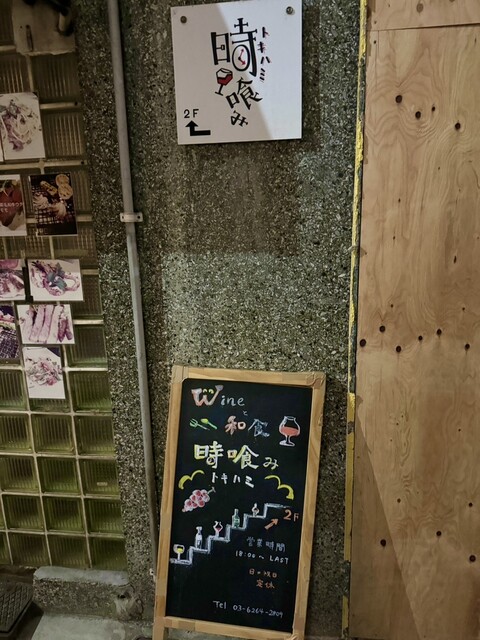 時喰み
トキハミ
2F
Wine
と
和食
時喰み
トキハミ
2F
営業時間
18:00〜LAST
日・祝日
定休
Tel 03-6264-2809